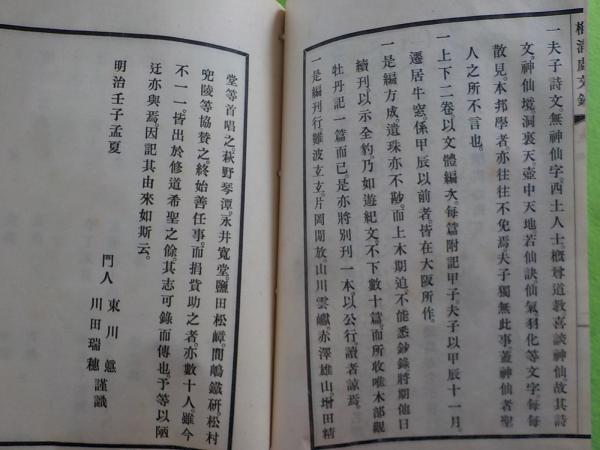 一夫子詩文無神仙字。西土人士。概尊道教。喜談神仙。故其詩
文。神仙境。洞裏天。壺中天地。若仙訣仙氣羽化等文字。每每
散見。本邦學者。亦往往不免焉。夫子獨無此事。蓋神仙者聖
人之所不言也。
一上下二卷以文體編次。每篇附記甲子。夫子以甲辰十一月。
遷居牛窓。係甲辰以前者。皆在大阪所作。
一是編方成。遺珠亦不尠。而上木期迫。不能悉鈔錄。將期他日
續刊。以示全豹。乃如遊紀文。不下數十篇。而所收唯木部觀
牡丹記一篇而已。是亦將別刊一本。以公行。讀者諒焉。
一是編刊行。難波立立。片岡閒放。山川雲巘。赤澤雄山。增田精
堂等首唱之。萩野琴潭。永井寬堂。鹽田松嶂。間嶋鐵研。松村
宛陵等協贊之。終始善任事。而捐資助之者。亦數十人。雖今
不一一。皆出於修道希聖之餘。其志可錄而傳也。予等以陋
迂亦與焉。因記其由來如斯云。
明治壬子孟夏
門人 東川
川田瑞穗 謹識